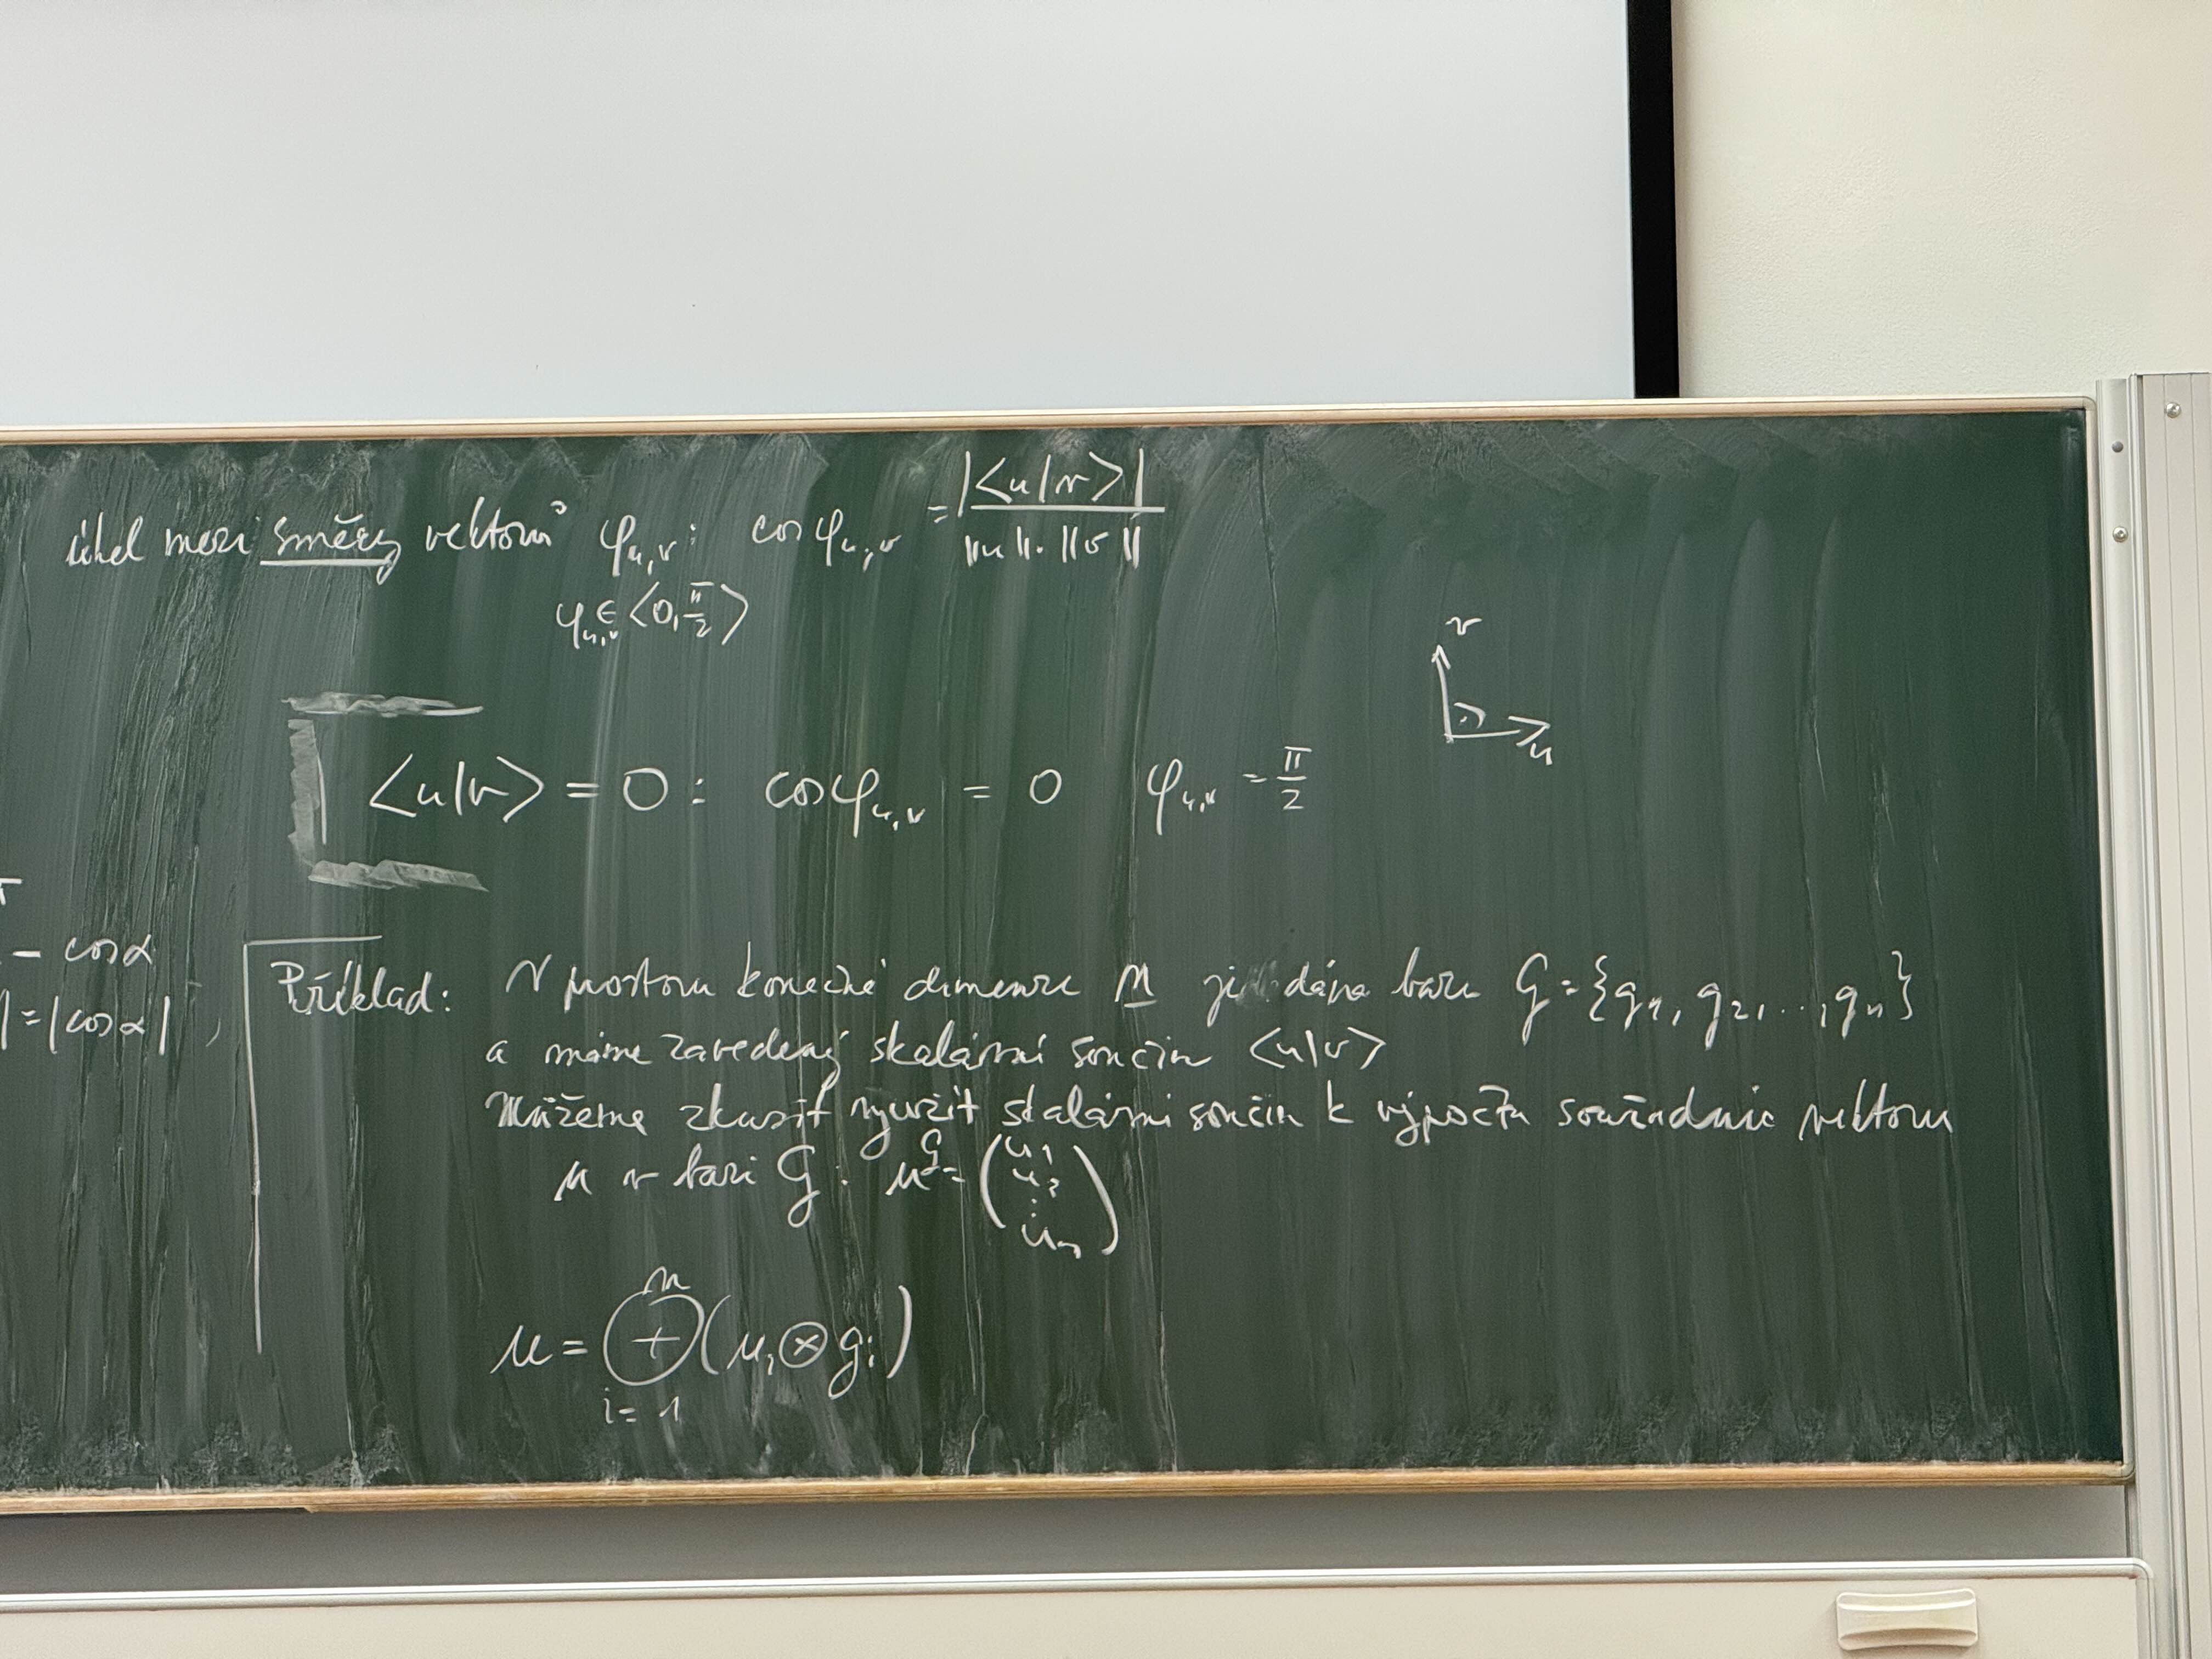 úhel mezi směry vektorů φ_{u,v}: cos φ_{u,v} = |<u|v>| / ‖u‖·‖v‖
φ_{u,v} ∈ <0, π/2>
v
u
<u|v> = 0 : cos φ_{u,v} = 0 φ_{u,v} = π/2
- cos α
| = |cos α| ,
Příklad: V prostoru konečné dimenze n je dána báze G = {g1, g2, ..., gn}
a máme zavedený skalární součin <u|v>
Můžeme zkusit využít skalární součin k výpočtu souřadnic vektoru
u v bázi G : u^G = (u1 u2 ⋮ un)
n
u = ⊕ (u_i ⊗ g_i)
i = 1